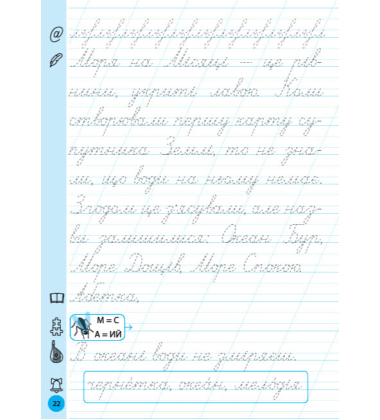 Моря на Місяці — це рів-
нини, укриті лавою. Коли
створювали першу карту су-
путника Землі, то не зна-
ли, що води на ньому немає.
Згодом це з'ясували, але наз-
ви залишилися: Океан Бур,
Море Дощів, Море Спокою.
Абетка,
М = С
А = ИЙ
В океані води не зміряєш.
чернетка, океан, мелодія
22